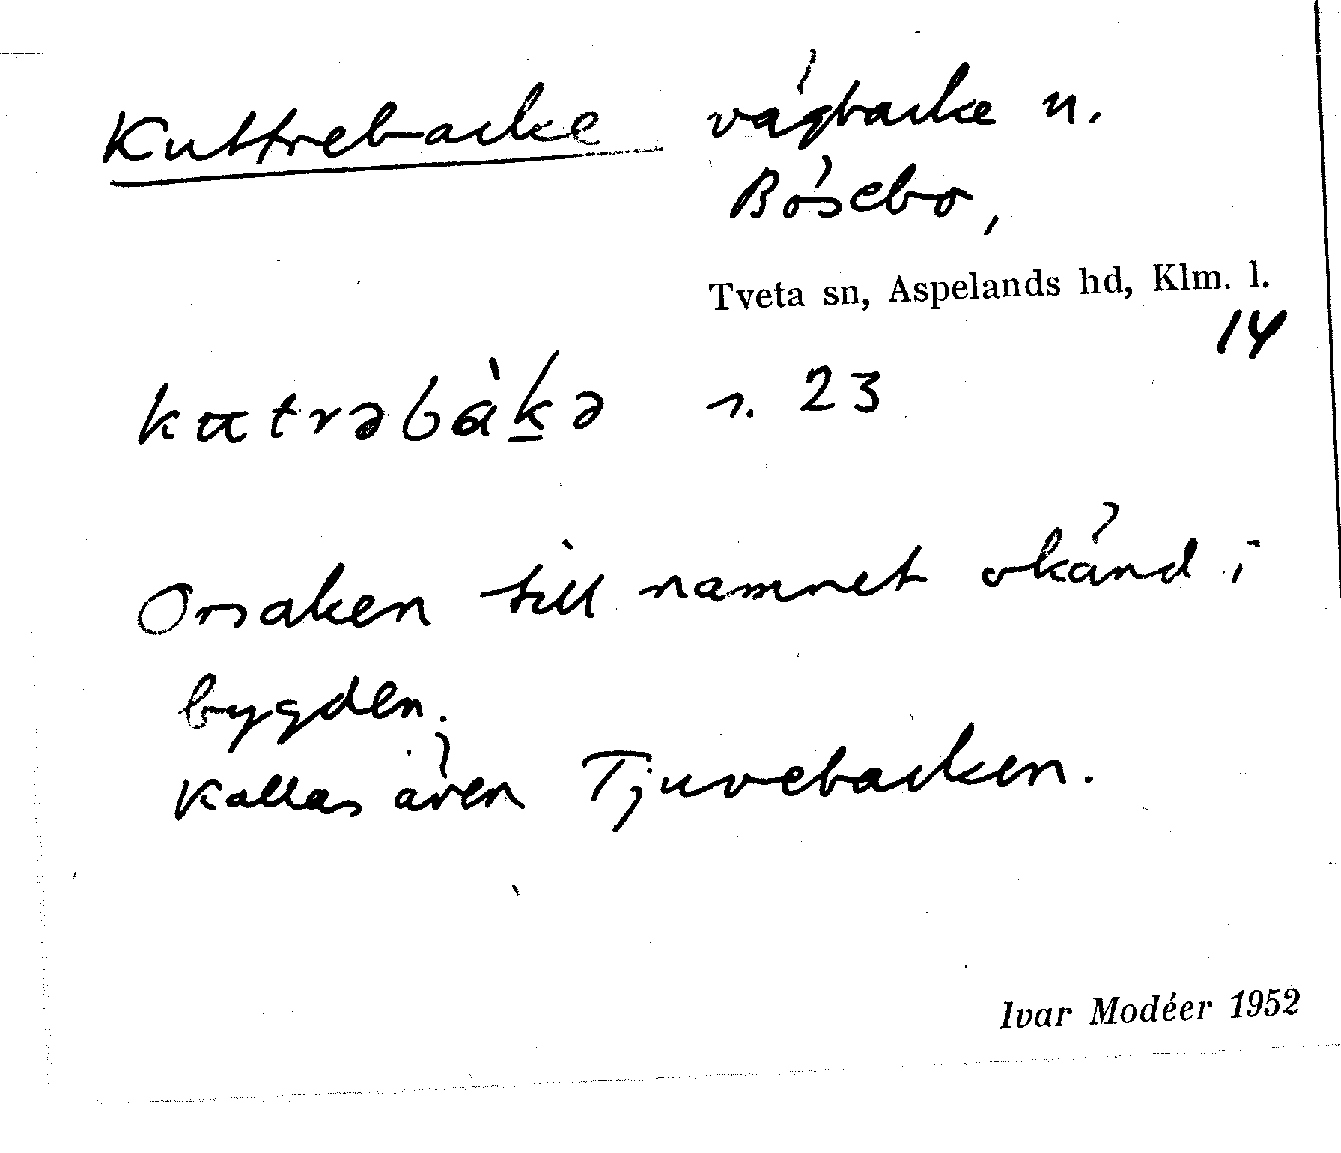 Kuttrebacke vägbacke n.
Bösebo,
Tveta sn, Aspelands hd, Klm. l.
14
kutrəbàkə r. 23
Orsaken till namnet okänd i
bygden.
Kallas även Tjuvebacken.
Ivar Modéer 1952